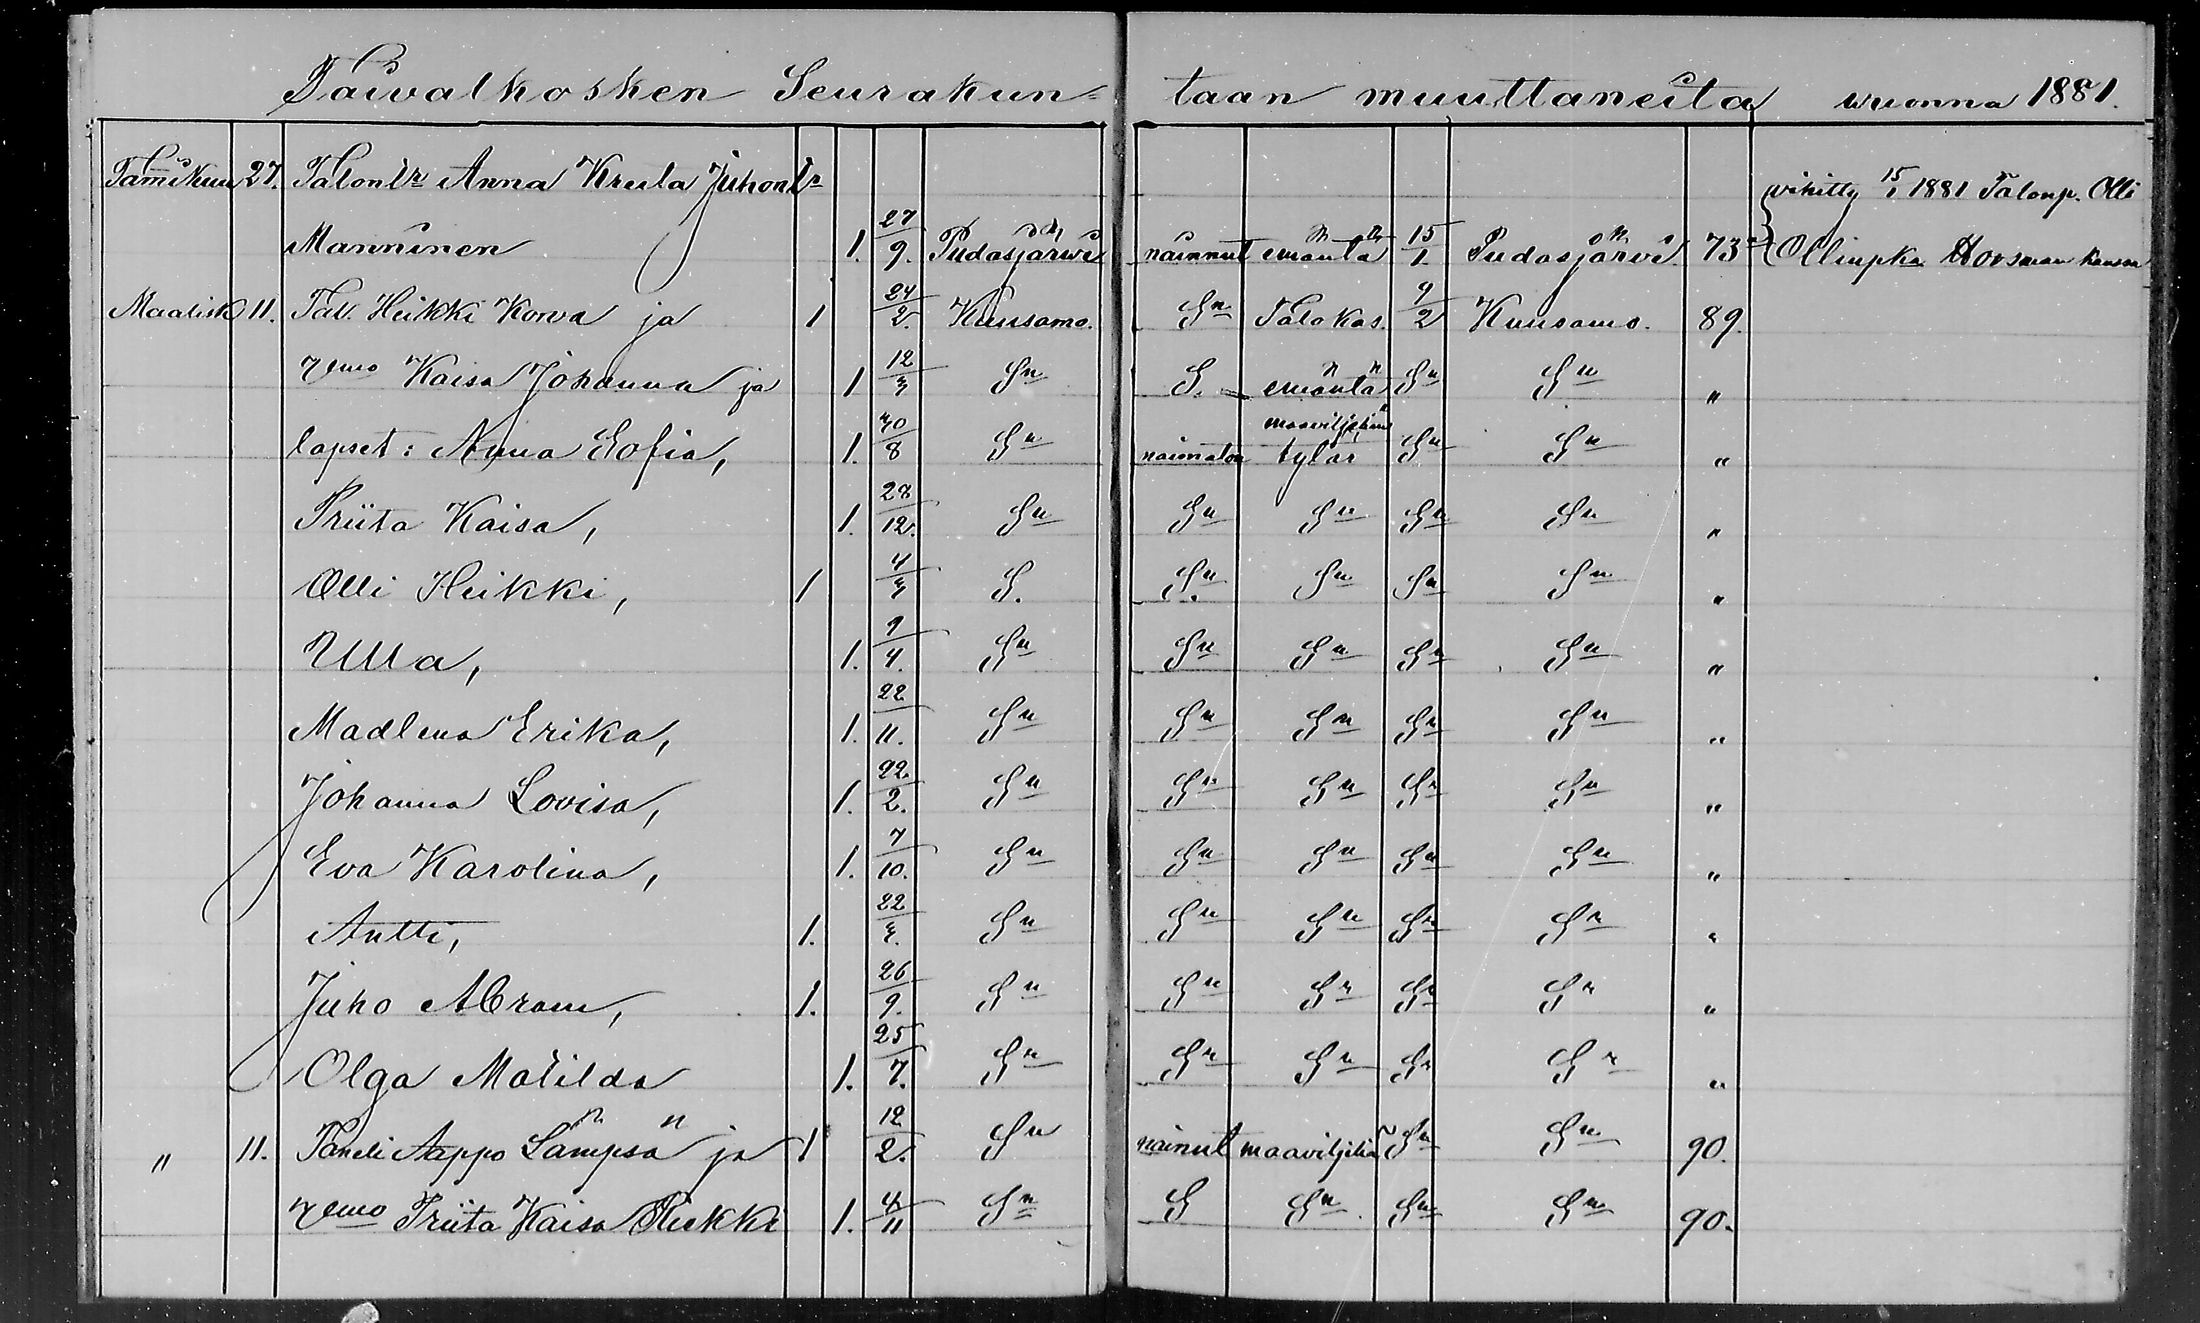 Taivalkosken Seurakun= taan muuttaneita vuonna 1881.
Tammikuu 27. Talontr Anna Kreeta Juhontr vihitty 15/1 1881 Talonp. Olli
Manninen 1. 27/9. Pudasjärvi nainnut emäntä 15/1. Pudasjärvi 73 Ollinpka Moosman kanssa
Maalisk 11. Tal. Heikki Korva ja 1 24/2. Kuusamo. Sn Talokas. 9/2 Kuusamo. 89.
vemo Kaisa Johanna ja 1 12/3 Sn S. emäntä Sn Sn "
lapset: Anna Sofia, 1. 30/8 Sn naimaton maaviljeliän tytär Sn Sn "
Priita Kaisa, 1. 28/12. Sn Sn Sn Sn Sn "
Olli Heikki, 1 4/3 S. Sn Sn Sn Sn "
Ulla, 1. 9/4. Sn Sn Sn Sn Sn "
Madlena Erika, 1. 22/11. Sn Sn Sn Sn Sn "
Johanna Lovisa, 1. 22./2. Sn Sn Sn Sn Sn "
Eva Karolina, 1. 7/10. Sn Sn Sn Sn Sn "
Antti, 1. 22/3. Sn Sn Sn Sn Sn "
Juho Abram, 1. 26/9. Sn Sn Sn Sn Sn "
Olga Matilda 1. 25/7. Sn Sn Sn Sn Sn "
" 11. Taneli Aappo Lämpsä ja 1 12/2. Sn nainut maaviljeliä Sn Sn 90.
vemo Priita Kaisa Riekki 1. 4/11 Sn S Sn Sn Sn 90.